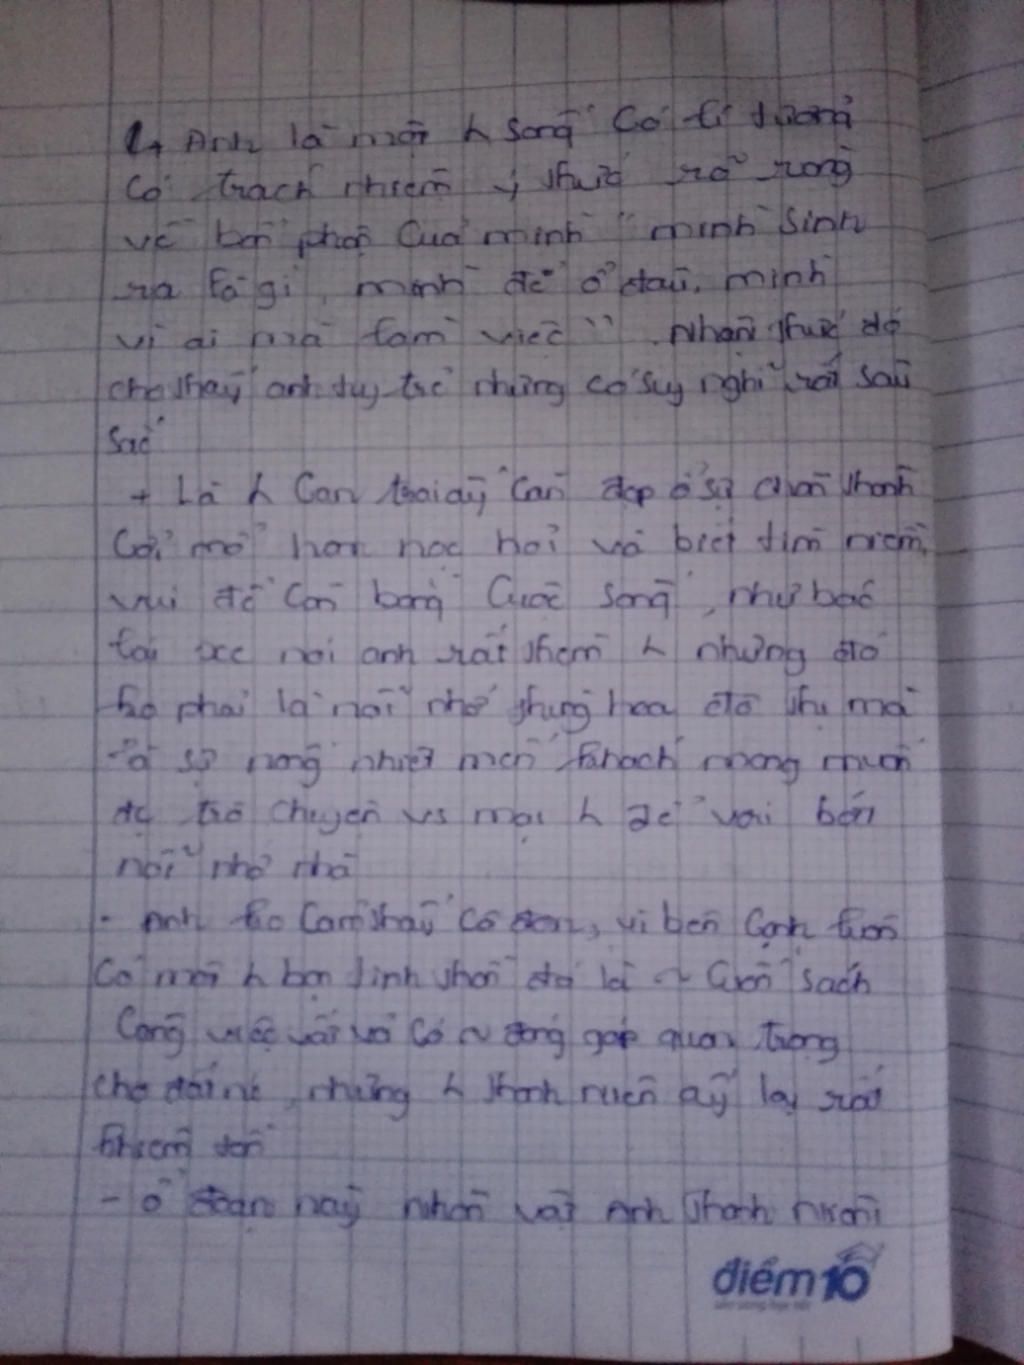 L, Anh là một h sống có lí tưởng
có trách nhiệm ý thức rõ ràng
về bổn phận của mình "mình sinh
ra là gì, mình đẻ ở đâu, mình
vì ai mà làm việc". Nhận thức đó
cho thấy anh tuy trẻ nhưng có suy nghĩ rất sâu
sắc
+ Là h con trai ấy còn đẹp ở sự chân thành
cởi mở ham học hỏi và biết tìm niềm
vui để cân bằng cuộc sống, như bác
lái xe nói anh rất thèm h nhưng đó
ko phải là nỗi nhớ phung hoa đô thị mà
là sự nồng nhiệt mến khách mong muốn
đc trò chuyện vs mọi h để vơi bớt
nỗi nhớ nhà
- Anh ko cảm thấy cô đơn, vì bên cạnh luôn
có một h bạn tinh thần đó là ~ cuốn sách
Công việc vất vả có ~ đóng góp quan trọng
cho đất nc, nhưng h thanh niên ấy lại rất
khiêm tốn
- ở đoạn này nhân vật anh thanh niên
điểm 10